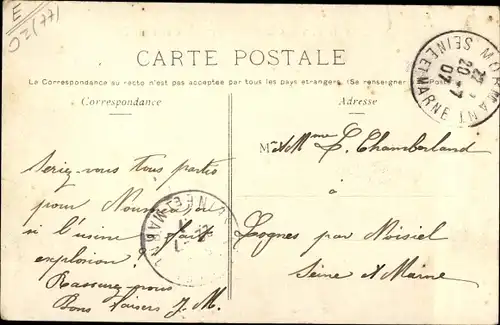 E
CARTE POSTALE
La Correspondance au recto n'est pas acceptée par tous les pays étrangers. (Se renseigner Poste)
Correspondance
Adresse
MORMANT
20 -7
07
SEINE ET MARNE
M et Mme L. Chamberland
à
Lognes par Noisiel
Seine et Marne
Seriez-vous tous partis
pour Nouméa ou
si l'usine fait
explosion?
Rassurez nous
Bons baisers J. M.
SEINE ET MARNE